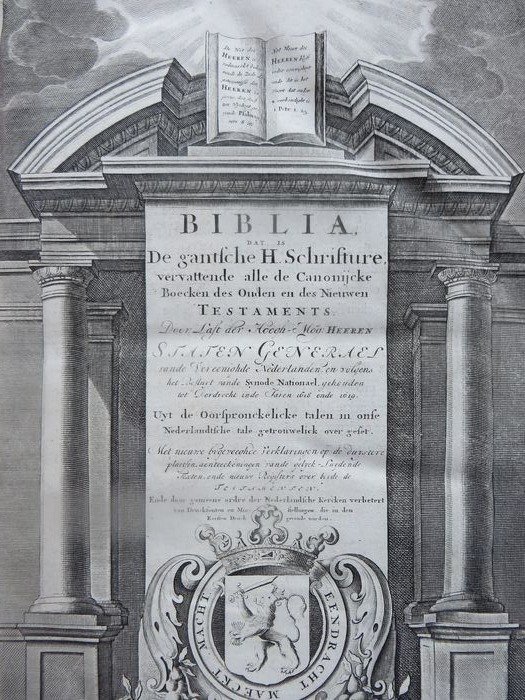 De Wet des
HEEREN is
HEEREN
Psalm
Het Woort des
HEEREN blijft
1 Petr. 1. 25.
BIBLIA,
DAT IS
De gantsche H. Schrifture,
vervattende alle de Canonijcke
Boecken des Ouden en des Nieuwen
TESTAMENTS.
Door Last der Hooch-Mog: HEEREN
STATEN GENERAEL
vande Vereenichde Nederlanden, en volgens
het Besluyt vande Synode Nationael, gehouden
tot Dordrecht inde Jaren 1618 ende 1619.
Uyt de Oorspronckelicke talen in onse
Nederlandtsche tale getrouwelick over geset.
Met nieuwe bygevoechde Verklaringen op de duystere
plaetsen, aenteeckeningen vande gelyck-luydende
Texten, ende nieuwe Registers over beyde de
TESTAMENTEN.
Ende door gemeene ordre der Nederlandsche Kercken verbetert
van Druckfouten en Mis- stellingen, die in den
Eersten Druck gevonde worden.
EENDRACHT MAECKT MACHT